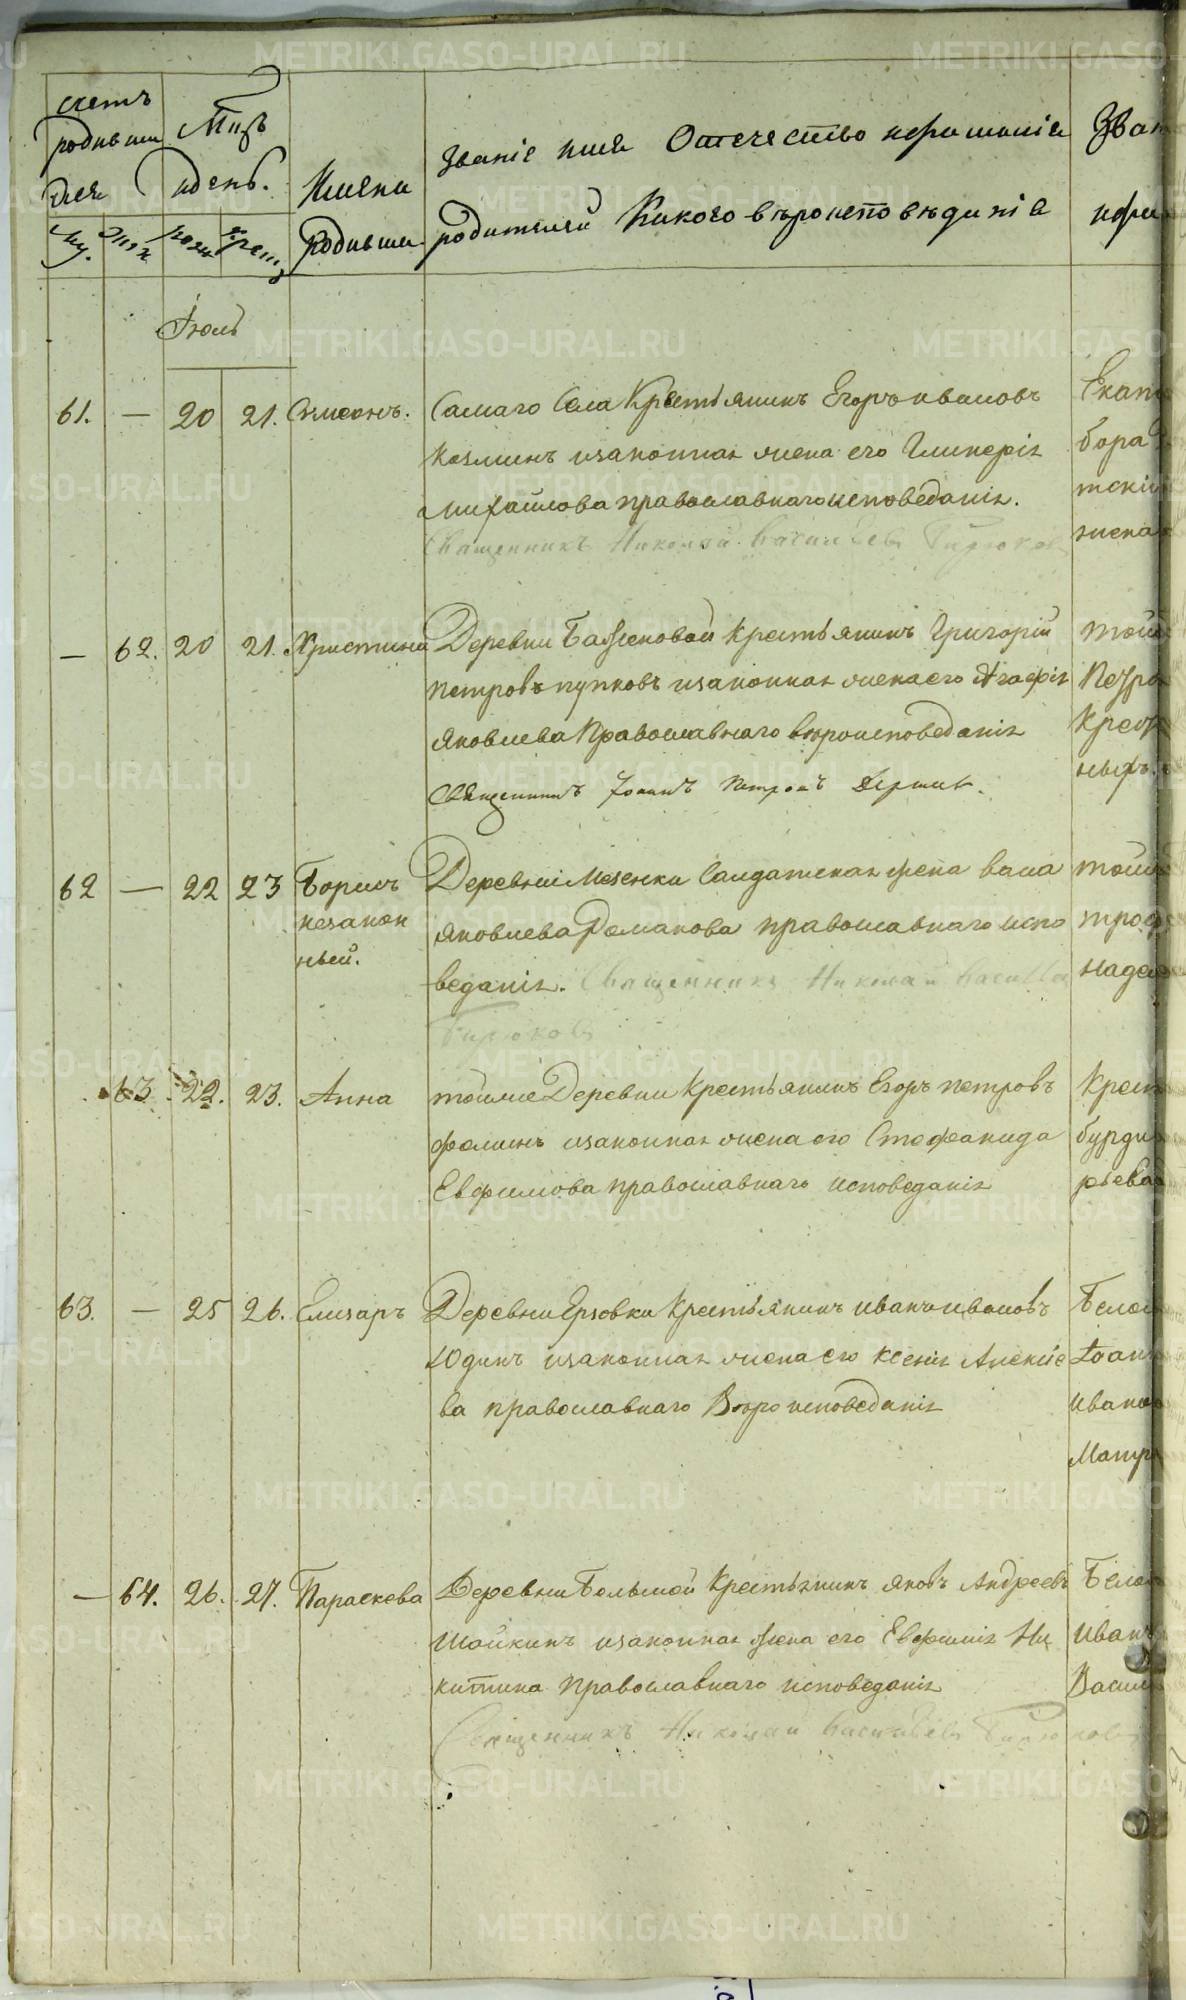 счетъ
родивши
хся
Мцъ
и день.
Имена
родивши
Званіе имя Отечество и фамилія
родителей Какого вѣроисповѣданія
Зва
и фа
му. жен рож крещ
Іюль
61. — 20 21. Симеонъ. Самаго Села Крестьянинъ Егоръ Ивановъ
Козминъ и законная жена его Гликерія
Михайлова православнаго исповеданія.
Священникъ Николай Васильевъ Бирюков
Екат
бора
тскій
жена
— 62. 20 21. Христина Деревни Баженовой Крестьянинъ Григорій
Петровъ Пупковъ и законная жена его Агафія
Яковлева Православнаго вѣроисповеданія
Священникъ Іоаннъ Петровъ
той
Петро
Крест
ныхъ
62 — 22 23 Борисъ Деревни Мезенки Салдатская жена Васа
незакон
ный.
Яковлева Романова православнаго испо
веданія. Священникъ Николай Васильев
Бирюковъ
той
троф
надеж
63 22. 23. Анна тойже Деревни Крестьянинъ Егоръ Петровъ
Фоминъ и законная жена его Стефанида
Евфимова православнаго исповеданія
крест
бурди
рьева
63. — 25 26. Елизаръ Деревни Ерзовки Крестьянинъ Иванъ Ивановъ
Юдинъ и законная жена его Ксенія Алексіе
ва православнаго Вѣроисповеданія
Бело
Іоан
Ивано
Матр
— 64. 26. 27. Параскева Деревни Большой Крестьянинъ Яковъ Андреевъ
Шайкинъ и законная жена его Евфимія Ни
китина Православнаго исповеданія
Священникъ Николай Васильевъ Бирюковъ
Бело
Иванъ
Васил
METRIKI.GASO-URAL.RU